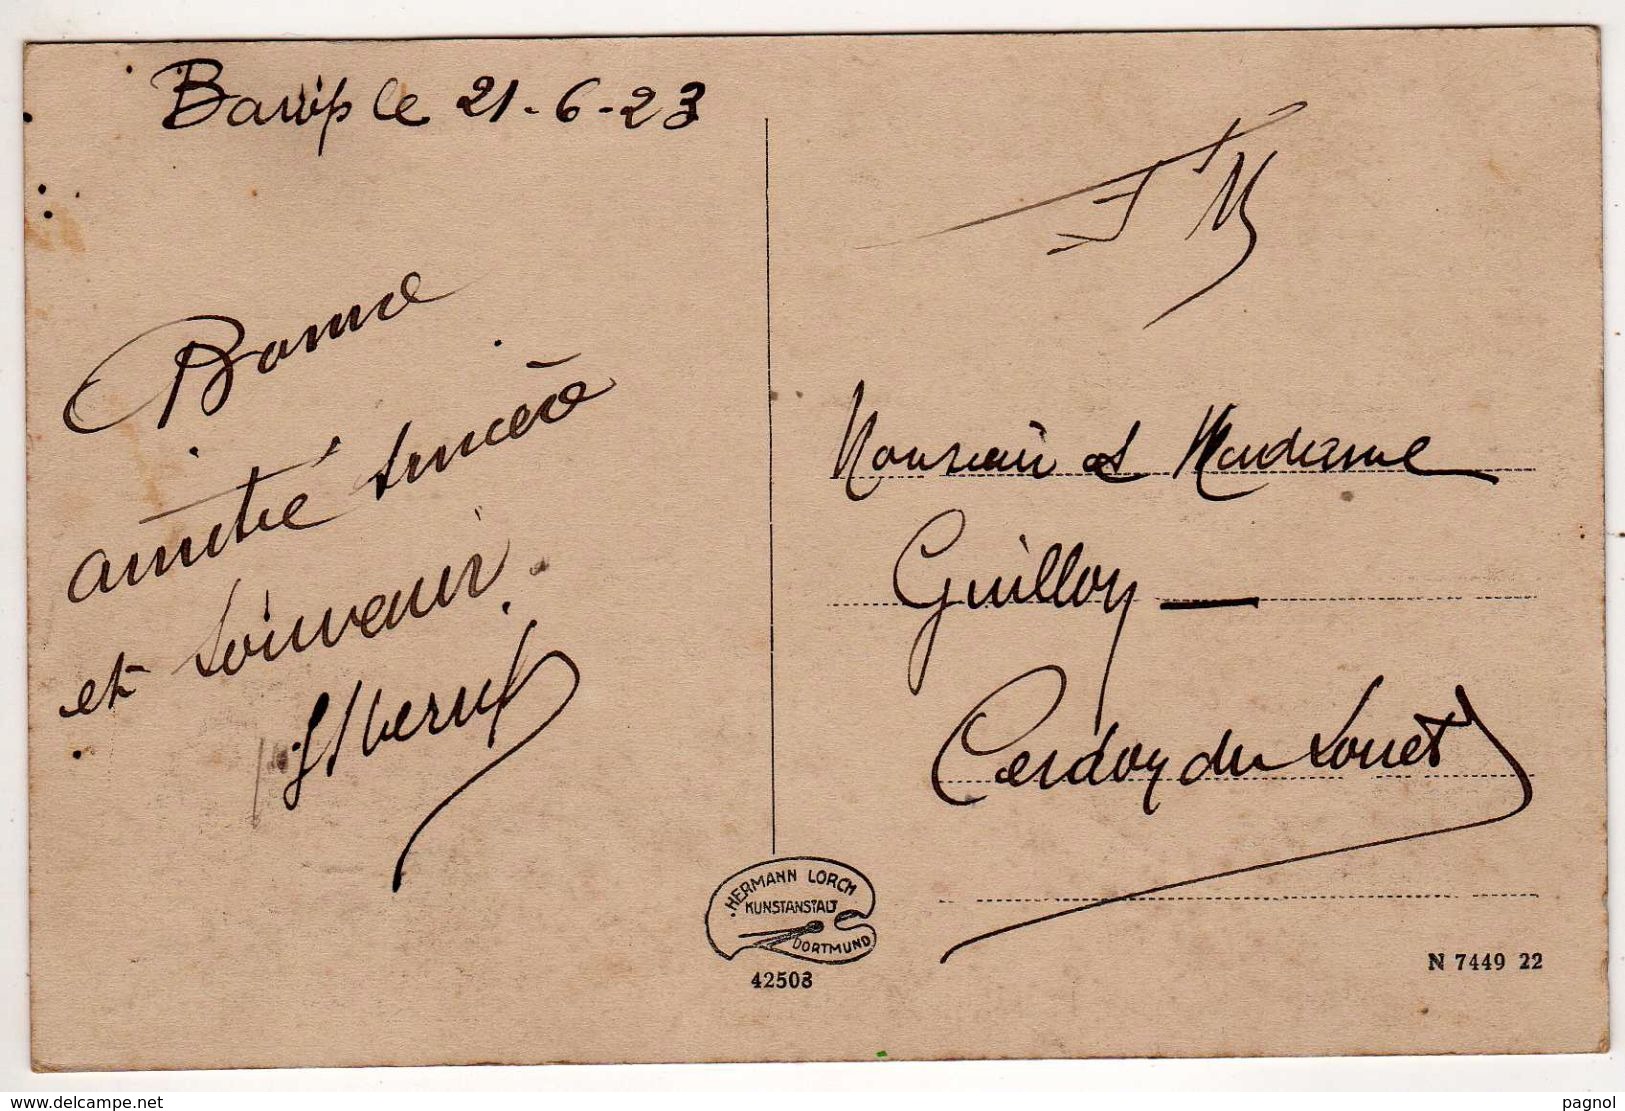 Barop le 21-6-23
Bonne
amitié sincère
et Souvenir.
F M
Monsieur et Madame
Guilloy
Cerdoy du Louet
HERMANN LORCH
KUNSTANSTALT
DORTMUND
42503
N 7449 22
www.delcampe.net
pagnol